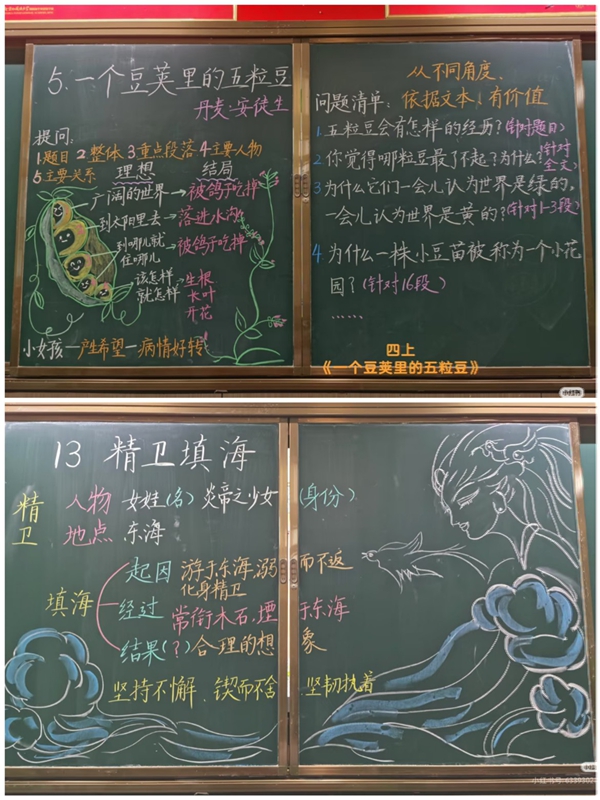 5.一个豆荚里的五粒豆
丹麦·安徒生
提问:
1题目 2整体 3重点段落 4主要人物
5主要关系
理想 结局
广阔的世界→被鸽子吃掉
到太阳里去→落进水沟
到哪儿就住哪儿→被鸽子吃掉
该怎样就怎样→生根
长叶
开花
小女孩—产生希望—病情好转
从不同角度、
问题清单:依据文本、有价值
1.五粒豆会有怎样的经历?(针对题目)
2.你觉得哪粒豆最了不起?为什么?(针对全文)
3.为什么它们一会儿认为世界是绿的,
一会儿认为世界是黄的?(针对1-3段)
4.为什么一株小豆苗被称为一个小花
园?(针对16段)
……
四上
《一个豆荚里的五粒豆》
小红书
13 精卫填海
精卫 人物 女娃(名) 炎帝之少女 (身份)
地点 东海
填海 起因 游于东海,溺而不返
化身精卫
经过 常衔木石,堙于东海
结果(?)合理的想象
坚持不懈、锲而不舍 坚韧执着
小红书